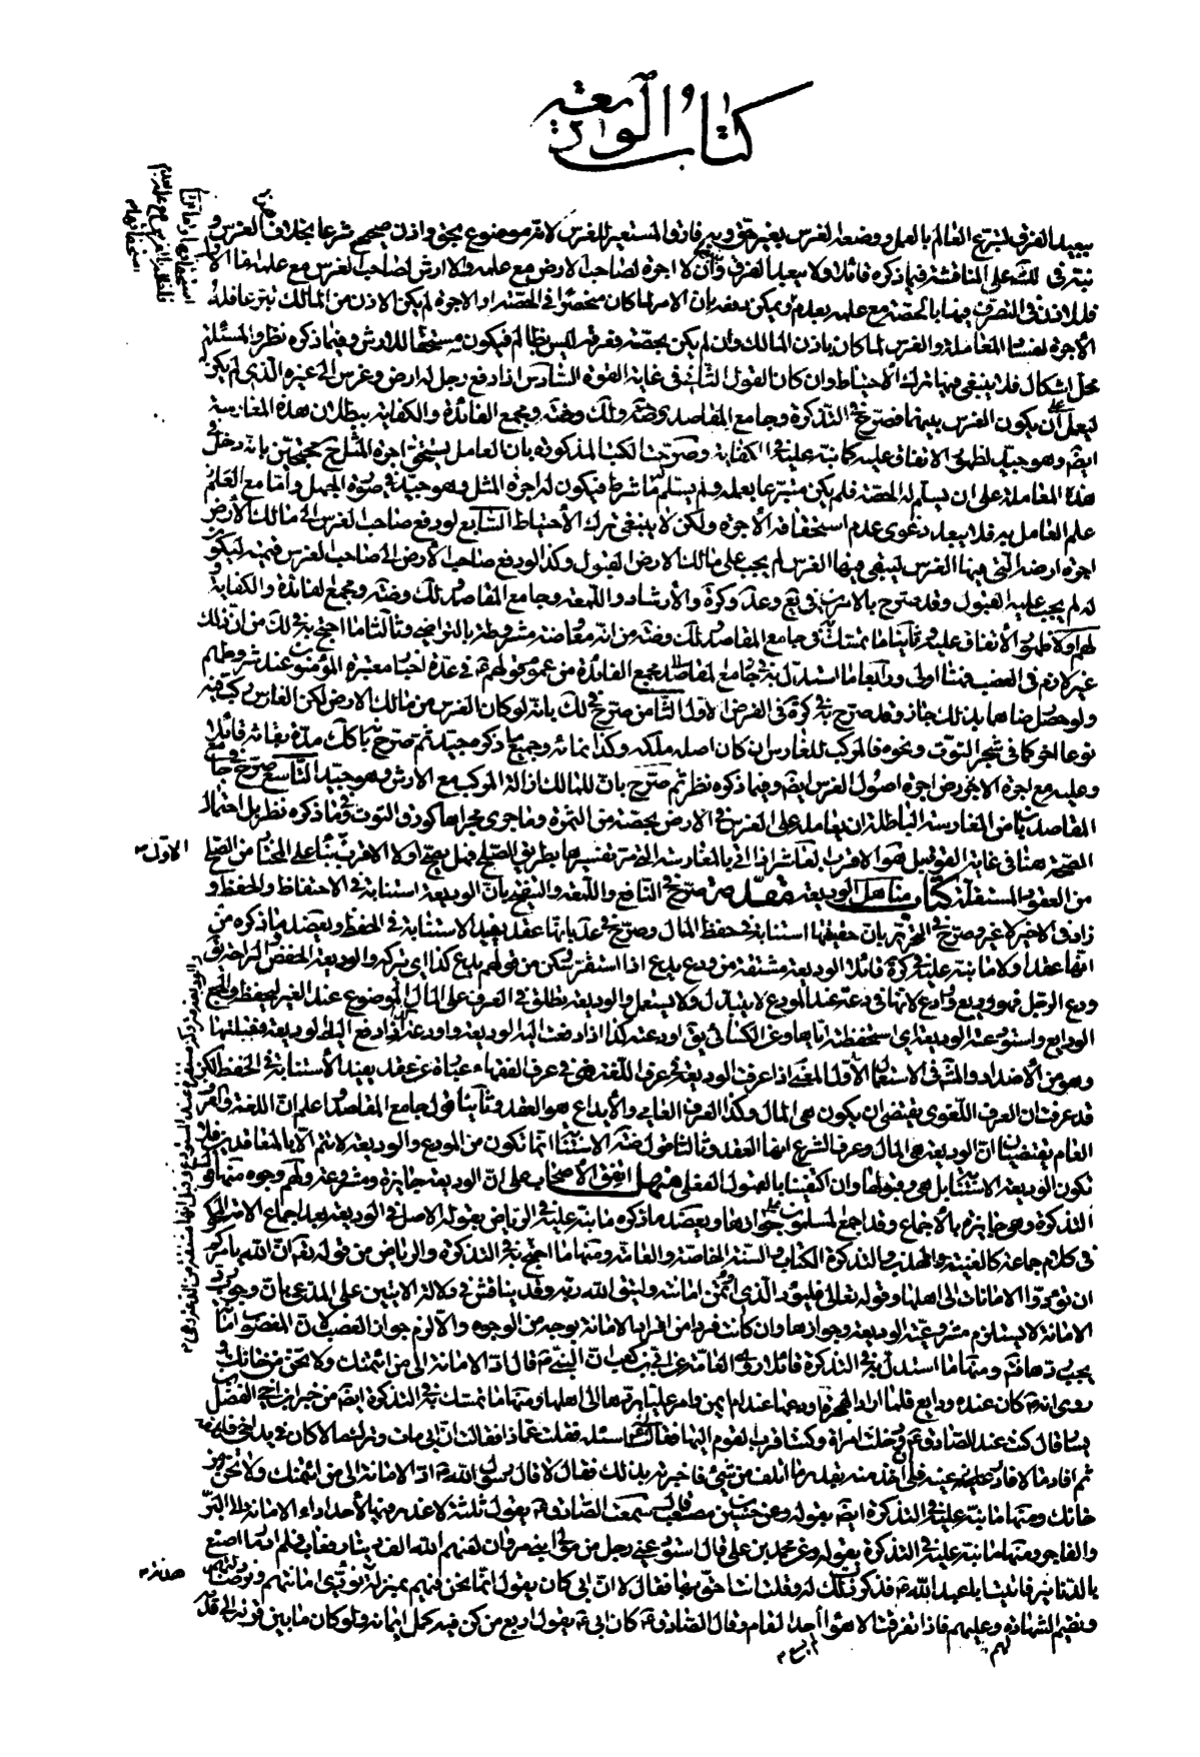 كتاب الوديعة
يبعد الفرق لتبرع الغالم بالعمل ووضعه الغرس بغير حق وبه فارق المستعير للغرس لانه موضوع بحق واذن صحيح شرعا بخلاف الغرس و
الأجرة لصاحب الارض مع علمه ولا الارش لصاحب الغرس مع علمه اما الاول
فللاذن في التصرف فيها بالحصة مع علمه بعدم ويمكن دفعه بان الامر لما كان منحصرا في الحصة او الاجرة لم يكن الاذن من المالك تبرعا فله
الأجرة لفساد المعاملة والغرس لما كان باذن المالك وان لم يكن بحصة فعرقه ليس بظالم فيكون مستحقا للارش وفيما ذكره نظر والمسئلة
محل اشكال فلا ينبغي فيها ترك الاحتياط وان كان القول الثاني في غاية القوة السادس اذا دفع رجل له ارض وغرس الى غيره الذي لم يكن
ليعمل على ان يكون الغرس بينهما فصرح في التذكرة وجامع المقاصد وضه ولك ومجمع الفائدة والكفاية ببطلان هذه المغارسة
ايضم وهو جيد لظهور الاتفاق عليه كما نبه عليه في الكفاية وصرحت الكتب المذكورة بان العامل يستحق اجرة المثل محتجين بانه دخل
هذه المعاملة على ان يسلم له الحصة فلم يكن متبرعا بعمله ولم يسلم ما شرط فيكون له اجرة المثل وهو جيد في صورة الجهل واما مع العلم
علم العامل به فلا يبعد دعوى عدم استحقاقه الأجرة ولكن لا ينبغي ترك الأحتياط السابع لو دفع صاحب الغرس الى مالك الأرض
اجرة ارضه التي فيها الغرس ليبقى فيها الغرس لم يجب على مالك الارض القبول وكذا لو دفع صاحب الأرض الى صاحب الغرس قيمته ليكون
له لم يجب عليه القبول وقد صرح بالامرين في يع وعد وكرة والأرشاد واللمعة وجامع المقاصد ولك وضه ومجمع الفائدة والكفاية
لهم اولا ظهور الأتفاق عليه وثانيا ما تمسك به في جامع المقاصد ولك وضه من انه معاوضة مشروطة بالتراضي وثالثا ما احتج به في لك من ان ذلك
غير لازم في الغصب فهنا اولى ورابعا ما استدل به في جامع المقاصد ومجمع الفائدة من عموم قولهم في عدة اخبار معتبرة المؤمنون عند شروطهم
ولو حصل رضاها بذلك جاز وقد صرح به في كرة في الفرض الاول الثامن صرح في لك بانه لو كان الغرس من مالك الارض لكن الغارس ركب فيه
نوعا اخر كما في شجر التوت ونحوه فالمركب للغارس ان كان اصله ملكه وكذا نمائه وجميع ما ذكره جيد ثم صرح بان له مدة بقائه قائلا
وعليه مع اجرة الارض اجرة اصول الغرس ايضم وفيما ذكره نظر ثم صرح بان للمالك ازالة المركب مع الارش وهو جيد التاسع صرح في جامع
المقاصد بان من المغارسة الباطلة ان يعامله على الغرس في الارض بحصة من الثمرة وما جرى مجراها كورق التوت وفيما ذكره نظر بل احتمال
الصحة هنا في غاية القوة بل هو الاقرب العاشر اذا اتى بالمغارسة بطريق الصلح فهل يصح اولا الاقرب
من العقود المستقلة كتاب مناهل الوديعة مقدمة صرح في النافع واللمعة والتنقيح بان الوديعة استنابة في الاحتفاظ والحفظ و
زاد في الاخير لا غير وصرح في التحرير بان حقيقتها استنابة في حفظ المال وصرح في عد بانها عقد يفيد الاستنابة في الحفظ ويعضد ما ذكره من
انها عقد اولا ما نبه عليه في كرة قائلا الوديعة مشتقة من ودع يدع اذا استقر وسكن من قولهم يدع كذا اي يتركه والوديعة
ودع الرجل فهو وديع ووادع لانها في دعة عند المودع لا يتبدل ولا يستعمل والوديعة تطلق في العرف على المال الموضوع عند الغير ليحفظه والجمع
الودايع واستودعته الوديعة اي استحفظته اياها وعن الكسائي يق اودعته كذا اذا دفعت اليه الوديعة واودعته اذا دفع اليك الوديعة فقبلتها
وهو من الأضداد والمشهور في الاستعمال الأول المعنى اذا عرفت الوديعة في عرف اللغة فهي في عرف الفقهاء عبارة عن عقد يفيد الأستنابة في الحفظ لكن
قد عرفت ان العرف اللغوي يقتضي ان يكون هي المال وكذا العرف العامي والأيداع هو العقد وثانيا قول جامع المقاصد اعلم ان اللغة والعرف
العام يقتضيان ان الوديعة هي المال وعرف الشرع انها العقد وثالثا قول ضه الاستنابة انما تكون من المودع والوديعة لا تتم الا بالمتعاقدين فلا
تكون الوديعة الاستنابة بل هي وقبولها وان اكتفينا بالقبول الفعلي منهل اتفق الأصحاب على ان الوديعة جايزة ومشروعة ولهم وجوه منها قول
التذكرة وهو جايزة بالأجماع وقد اجمع المسلمون على جوازها ويعضد ما ذكره ما نبه عليه في الرياض بقوله الاصل في الوديعة بعد اجماع الامة المحكي
في كلام جماعة كالغنية والمهذب والتذكرة الكتاب والسنة الخاصة والعامة ومنها ما احتج به في التذكرة والرياض من قوله تعم ان الله يامركم
ان تؤدوا الامانات الى اهلها وقوله تعالى فليؤد الذي اؤتمن امانته وليتق الله ربه وقد يناقش في دلالة الايتين على المدعى بان وجوب رد
الامانة لا يستلزم مشروعية الوديعة وجوازها وان كانت فردا من افراد الامانة بوجه من الوجوه والا لزم جواز الغصب لان المغصوب ايضا
يجب ردها فتم ومنها ما استدل به في التذكرة قائلا روى العامة عن ابي بن كعب ان النبي ص قال اد الامانة الى من ائتمنك ولا تخن من خانك و
روي انه ص كان عنده ودايع فلما اراد الهجرة اودعها عند ام ايمن وامر عليا ع بردها الى اهلها ومنها ما تمسك به في التذكرة ايضم من خبر ابن اخي الفضل
بن يسار قال كنت عند الصادق ع ودخلت امراة وكنت اقرب القوم اليها فقالت لي اسئله فقلت عماذا فقالت ان ابني مات وترك مالا كان في يد اخي فاتلفه
ثم افاد مالا فاودعنيه فلي ان اخذ منه بقدر ما اتلف من شيء فاخبرته بذلك فقال لا قال رسول الله ص اد الامانة الى من ائتمنك ولا تخن من
خانك ومنها ما نبه عليه في التذكرة ايضم بقوله وعن حسين بن مصعب قال سمعت الصادق ع يقول ثلثة لا عذر فيها لأحد اداء الامانة الى البر
والفاجر ومنها ما نبه عليه في التذكرة بقوله وعن محمد بن علي قال استودعني رجل من موالي بني مروان لعنهم الله الف دينار فغاب فلم ادر ما اصنع
بالدنانير فاتيت ابا عبد الله ع فذكرت ذلك له وقلت انت احق بها فقال لا ان ابي كان يقول انما نحن فيهم بمنزلة هدنة نؤدي امانتهم ونرد ضالتهم
ونقيم الشهادة لهم وعليهم فاذا تفرقت الاهواء لم يسع احدا المقام وقال الصادق ع كان ابي ع يقول اربع من كن فيه كمل ايمانه ولو كان ما بين قرنه الى قدمه